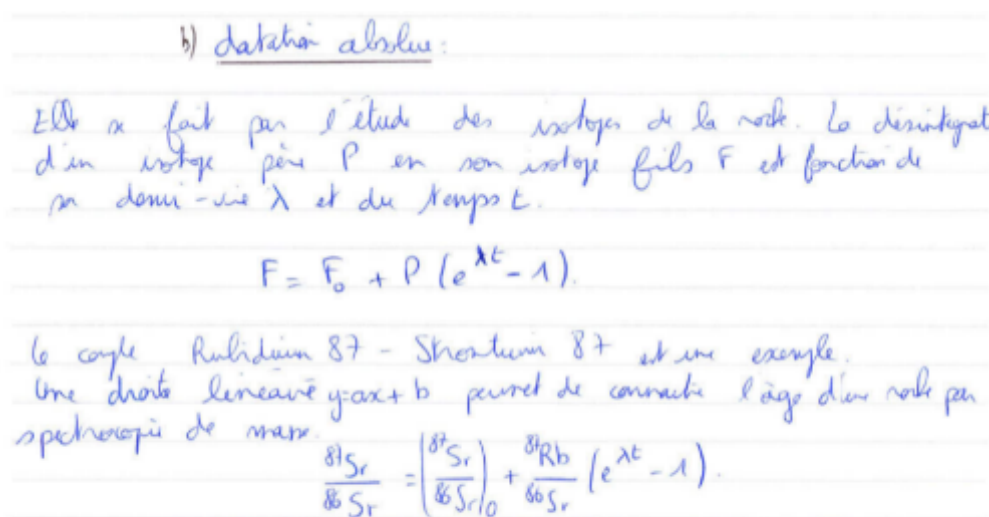 b) datation absolue:
Elle se fait par l'étude des isotopes de la roche. La désintégrat
d'un isotope père P en son isotope fils F est fonction de
sa demi-vie λ et du temps t.
F = F₀ + P (e^λt - 1).
Le couple Rubidium 87 - Strontium 87 est une exemple.
Une droite linéaire y=ax+b permet de connaitre l'âge d'une roche par
spectroscopie de masse.
⁸⁷Sr/⁸⁶Sr = (⁸⁷Sr/⁸⁶Sr)₀ + ⁸⁷Rb/⁸⁶Sr (e^λt - 1).